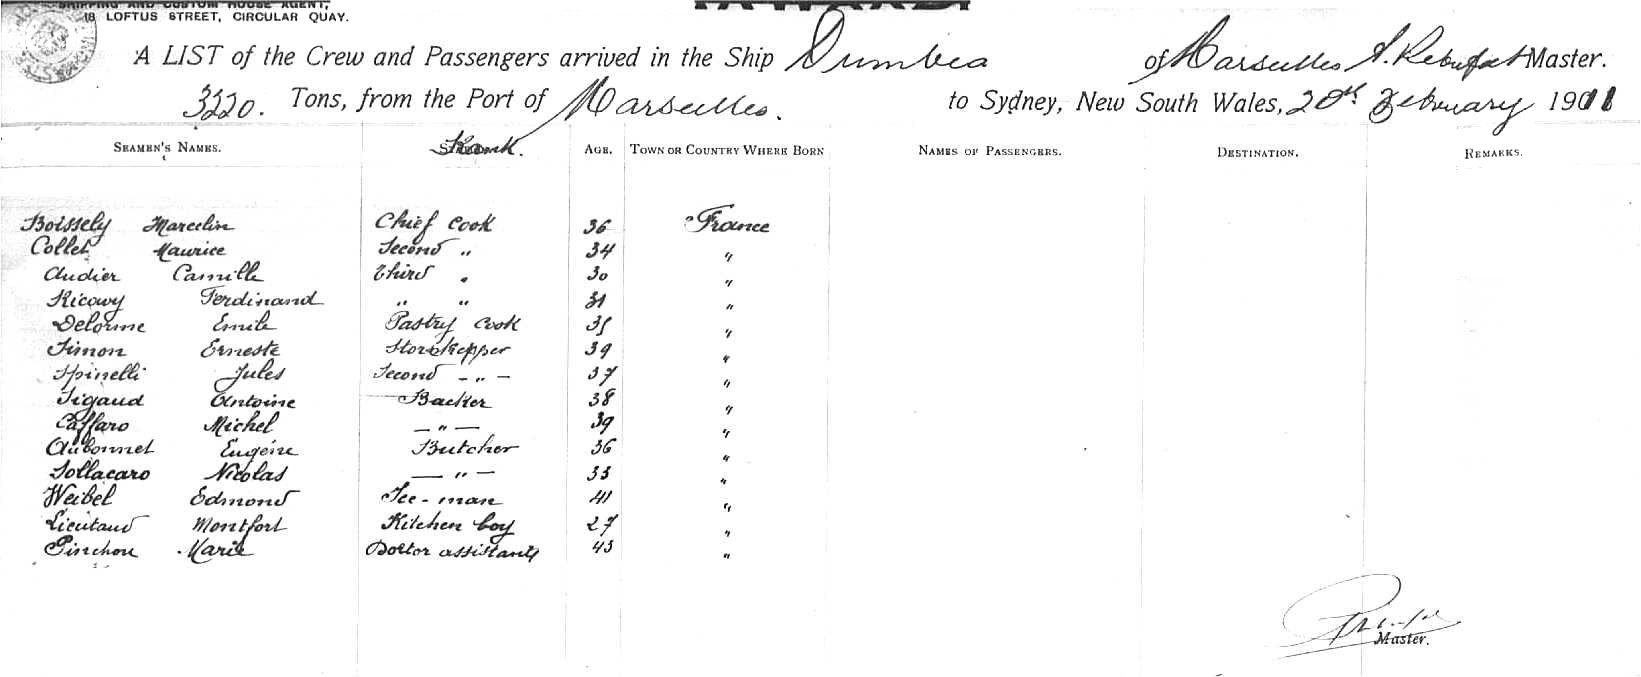 SHIPPING AND CUSTOM HOUSE AGENT,
18 LOFTUS STREET, CIRCULAR QUAY.
A LIST of the Crew and Passengers arrived in the Ship Dumbea of Marseilles A. Rebufat Master.
3220. Tons, from the Port of Marseilles. to Sydney, New South Wales, 20th February 1911
SEAMEN'S NAMES. Rank. AGE. TOWN OR COUNTRY WHERE BORN NAMES OF PASSENGERS. DESTINATION. REMARKS.
Boissely Marcelin Chief Cook 36 France
Collet Maurice Second " 34 "
Audier Camille Third " 30 "
Ricowy Ferdinand " " 31 "
Delorme Emile Pastry Cook 35 "
Simon Erneste Storekepper 39 "
Spinelli Jules Second - " - 37 "
Sigaud Antoine Backer 38 "
Caffaro Michel — " — 39 "
Aubonnet Eugène Butcher 36 "
Tollacaro Nicolas — " — 33 "
Weibel Edmond Ice-man 41 "
Lieutaud Montfort Kitchen boy 27 "
Pinchon Marie Doctor assistant 43 "
Master.